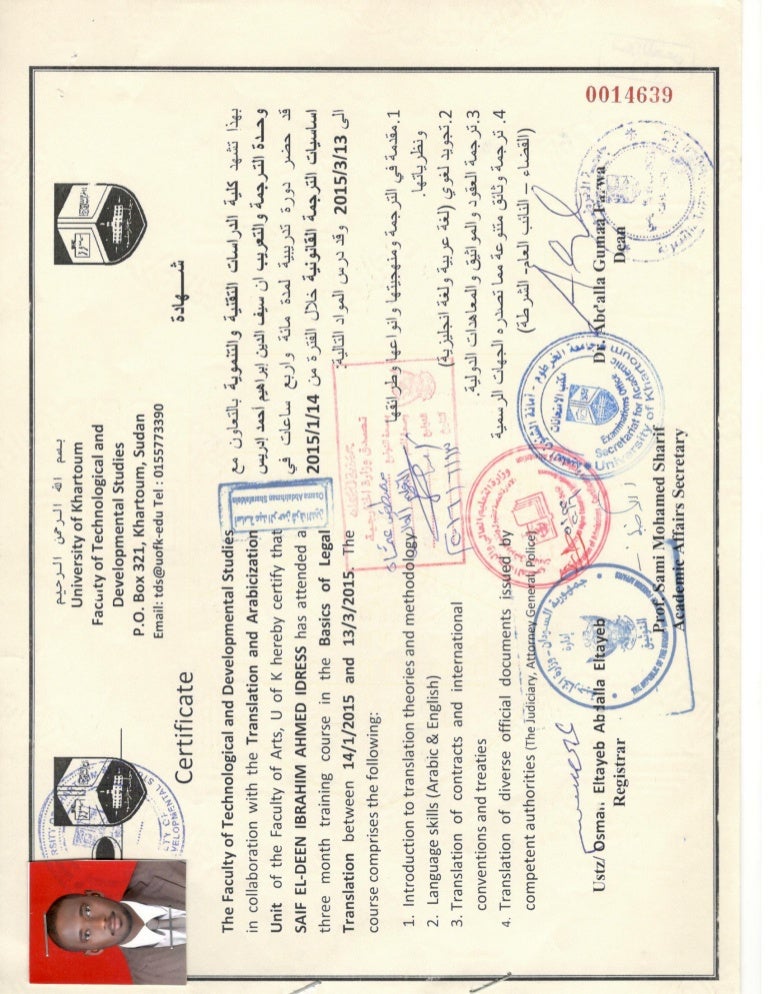 0014639
بسم الله الرحمن الرحيم
University of Khartoum
Faculty of Technological and
Developmental Studies
P.O. Box 321, Khartoum, Sudan
Email: tds@uofk-edu Tel : 0155773390
Certificate
The Faculty of Technological and Developmental Studies
in collaboration with the Translation and Arabicization
Unit of the Faculty of Arts, U of K hereby certify that
SAIF EL-DEEN IBRAHIM AHMED IDRESS has attended a
three month training course in the Basics of Legal
Translation between 14/1/2015 and 13/3/2015. The
course comprises the following:
1. Introduction to translation theories and methodology
2. Language skills (Arabic & English)
3. Translation of contracts and international
conventions and treaties
4. Translation of diverse official documents issued by
competent authorities (The Judiciary, Attorney General, Police)
شـهـادة
بهذا تشهد كلية الدراسات التقنية والتنموية بالتعاون مع
وحدة الترجمة والتعريب ان سيف الدين إبراهيم أحمد إدريس
قد حضر دورة تدريبية لمدة مائة واربع ساعات في
اساسيات الترجمة القانونية خلال الفترة من 2015/1/14
الى 2015/3/13 وقد درس المواد التالية:
1.مقدمة في الترجمة ومنهجيتها وانواعها وطرائقها
ونظرياتها.
2.تجويد لغوي (لغة عربية ولغة انجليزية)
3.ترجمة العقود والمواثيق والمعاهدات الدولية.
4. ترجمة وثائق متنوعة مما تصدره الجهات الرسمية
(القضاء – النائب العام- الشرطة)
Ustz/ Osman Eltayeb Abdalla Eltayeb
Registrar
Prof. Sami Mohamed Sharif
Academic Affairs Secretary
Dr. Abd'alla Gumaa Farwa
Dean
Osama Abdalrhman
Examinations Office
Secretariat for Academic
University of Khartoum
جمهورية السودان
التوثيق